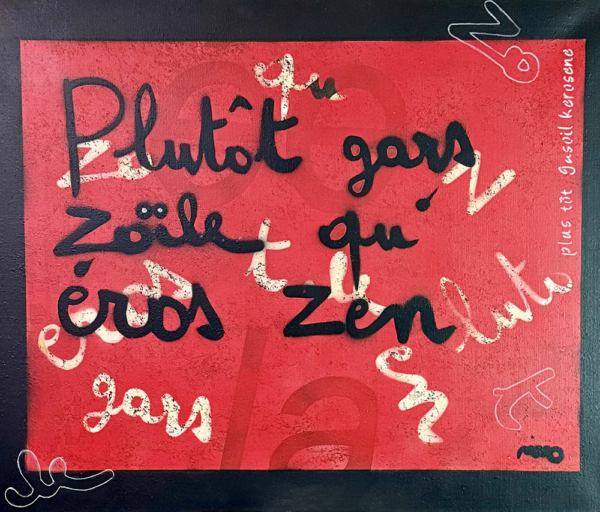 Plutôt gars
zoïle qu'
éros zen
qu
z
N
t
éros
lutô
gars
en
la
plus tôt gasoil kerosene